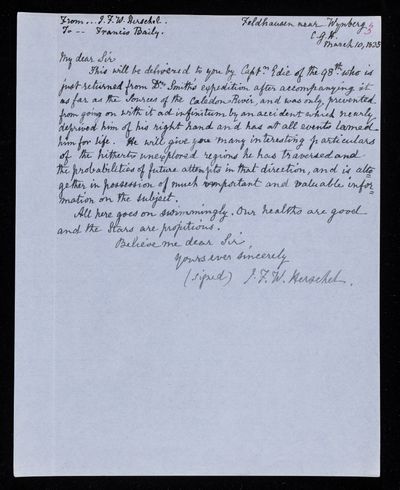 From... J.F.W. Herschel.
To -- Francis Baily.
Feldhausen near Wynberg
C.G.H.
March 10, 1835
My dear Sir
This will be delivered to you by Captn. Edie of the 98th. who is
just returned from Dr. Smith's expedition after accompanying it
as far as the Sources of the Caledon River, and was only prevented
from going on with it ad infinitum by an accident which nearly
deprived him of his right hand and has at all events lamed
him for life. He will give you many interesting particulars
of the hitherto unexplored regions he has traversed and
the probabilities of future attempts in that direction, and is alto=
gether in possession of much important and valuable infor=
mation on the subject.
All here goes on swimmingly. Our healths are good
and the Stars are propitious.
Believe me dear Sir,
Yours ever sincerely
(signed) J.F.W. Herschel.